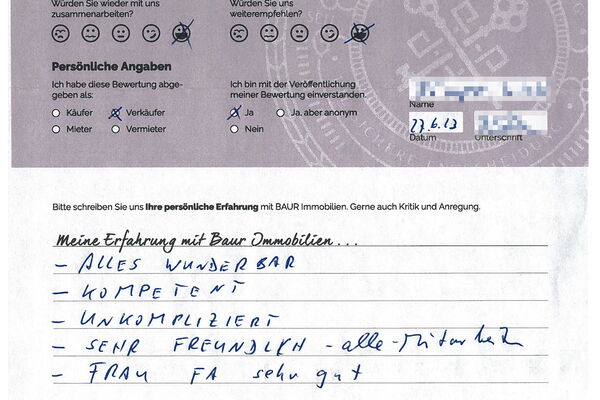 Würden Sie wieder mit uns
zusammenarbeiten?
Würden Sie uns
weiterempfehlen?
Persönliche Angaben
Ich habe diese Bewertung abge-
geben als:
Käufer
Verkäufer
Mieter
Vermieter
Ich bin mit der Veröffentlichung
meiner Bewertung einverstanden.
Ja
Ja, aber anonym
Nein
Name
27.6.13
Datum
Unterschrift
Bitte schreiben Sie uns Ihre persönliche Erfahrung mit BAUR Immobilien. Gerne auch Kritik und Anregung.
Meine Erfahrung mit Baur Immobilien...
- ALLES WUNDERBAR
- KOMPETENT
- UNKOMPLIZIERT
- SEHR FREUNDLICH - alle - Mitarbeiter
- FRAU FA sehr gut